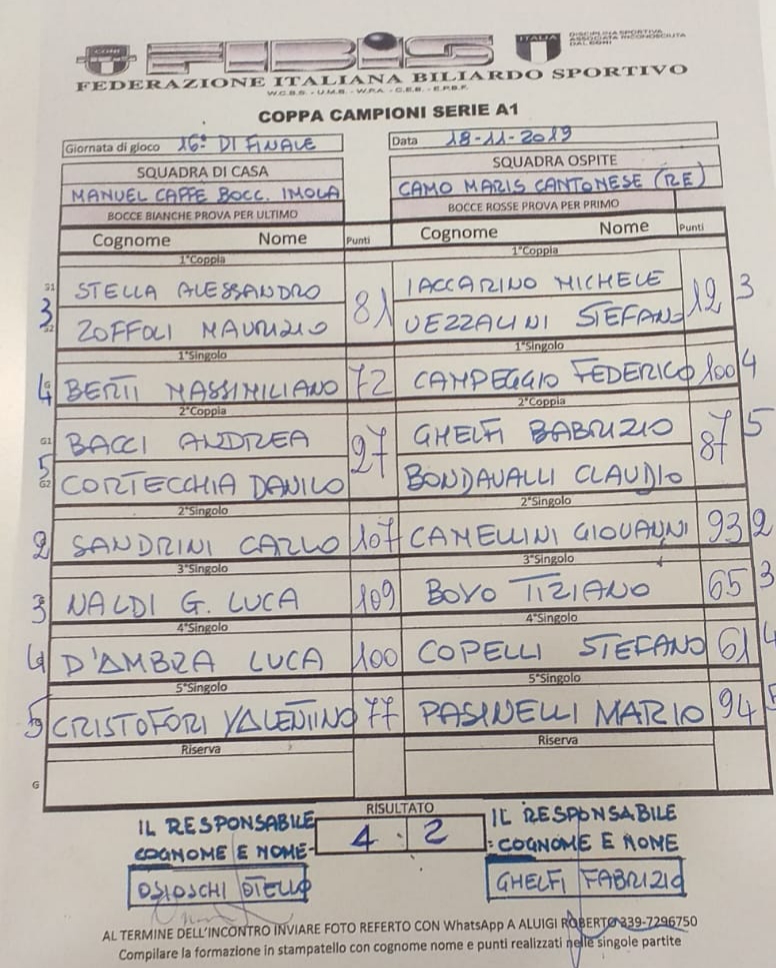 CONI FIBIS ITALIA DISCIPLINA SPORTIVA ASSOCIATA RICONOSCIUTA DAL CONI
FEDERAZIONE ITALIANA BILIARDO SPORTIVO
W.C.B.S. - U.M.B. - W.P.A. - C.E.B. - E.P.B.F.
COPPA CAMPIONI SERIE A1
Giornata di gioco 16ⁱ DI FINALE Data 18-11-2019
SQUADRA DI CASA SQUADRA OSPITE
MANUEL CAFFE BOCC. IMOLA CAMO MARIS CANTONESE (RE)
BOCCE BIANCHE PROVA PER ULTIMO BOCCE ROSSE PROVA PER PRIMO
Cognome Nome Punti Cognome Nome Punti
1°Coppia 1°Coppia
STELLA ALESSANDRO IACCARINO MICHELE
3 81 12 3
ZOFFOLI MAURIZIO VEZZALINI STEFANO
1°Singolo 1°Singolo
4 BERTI MASSIMILIANO 72 CAMPEGGIO FEDERICO 100 4
2°Coppia 2°Coppia
G1 BACCI ANDREA GHELFI BABRIZIO
5 27 87 5
G2 CORTECCHIA DANILO BONDAVALLI CLAUDIO
2°Singolo 2°Singolo
2 SANDRINI CARLO 107 CAMELLINI GIOVANNI 93 2
3°Singolo 3°Singolo
3 NALDI G. LUCA 109 BOVO TIZIANO 65 3
4°Singolo 4°Singolo
4 D'AMBRA LUCA 100 COPELLI STEFANO 61 4
5°Singolo 5°Singolo
5 CRISTOFORI VALENTINO 77 PASINELLI MARIO 94 5
Riserva Riserva
G
RISULTATO
IL RESPONSABILE 4 2 IL RESPONSABILE
COGNOME E NOME- : COGNOME E NOME
STELLO GHELFI FABRIZIO
AL TERMINE DELL'INCONTRO INVIARE FOTO REFERTO CON WhatsApp A ALUIGI ROBERTO 339-7296750
Compilare la formazione in stampatello con cognome nome e punti realizzati nelle singole partite